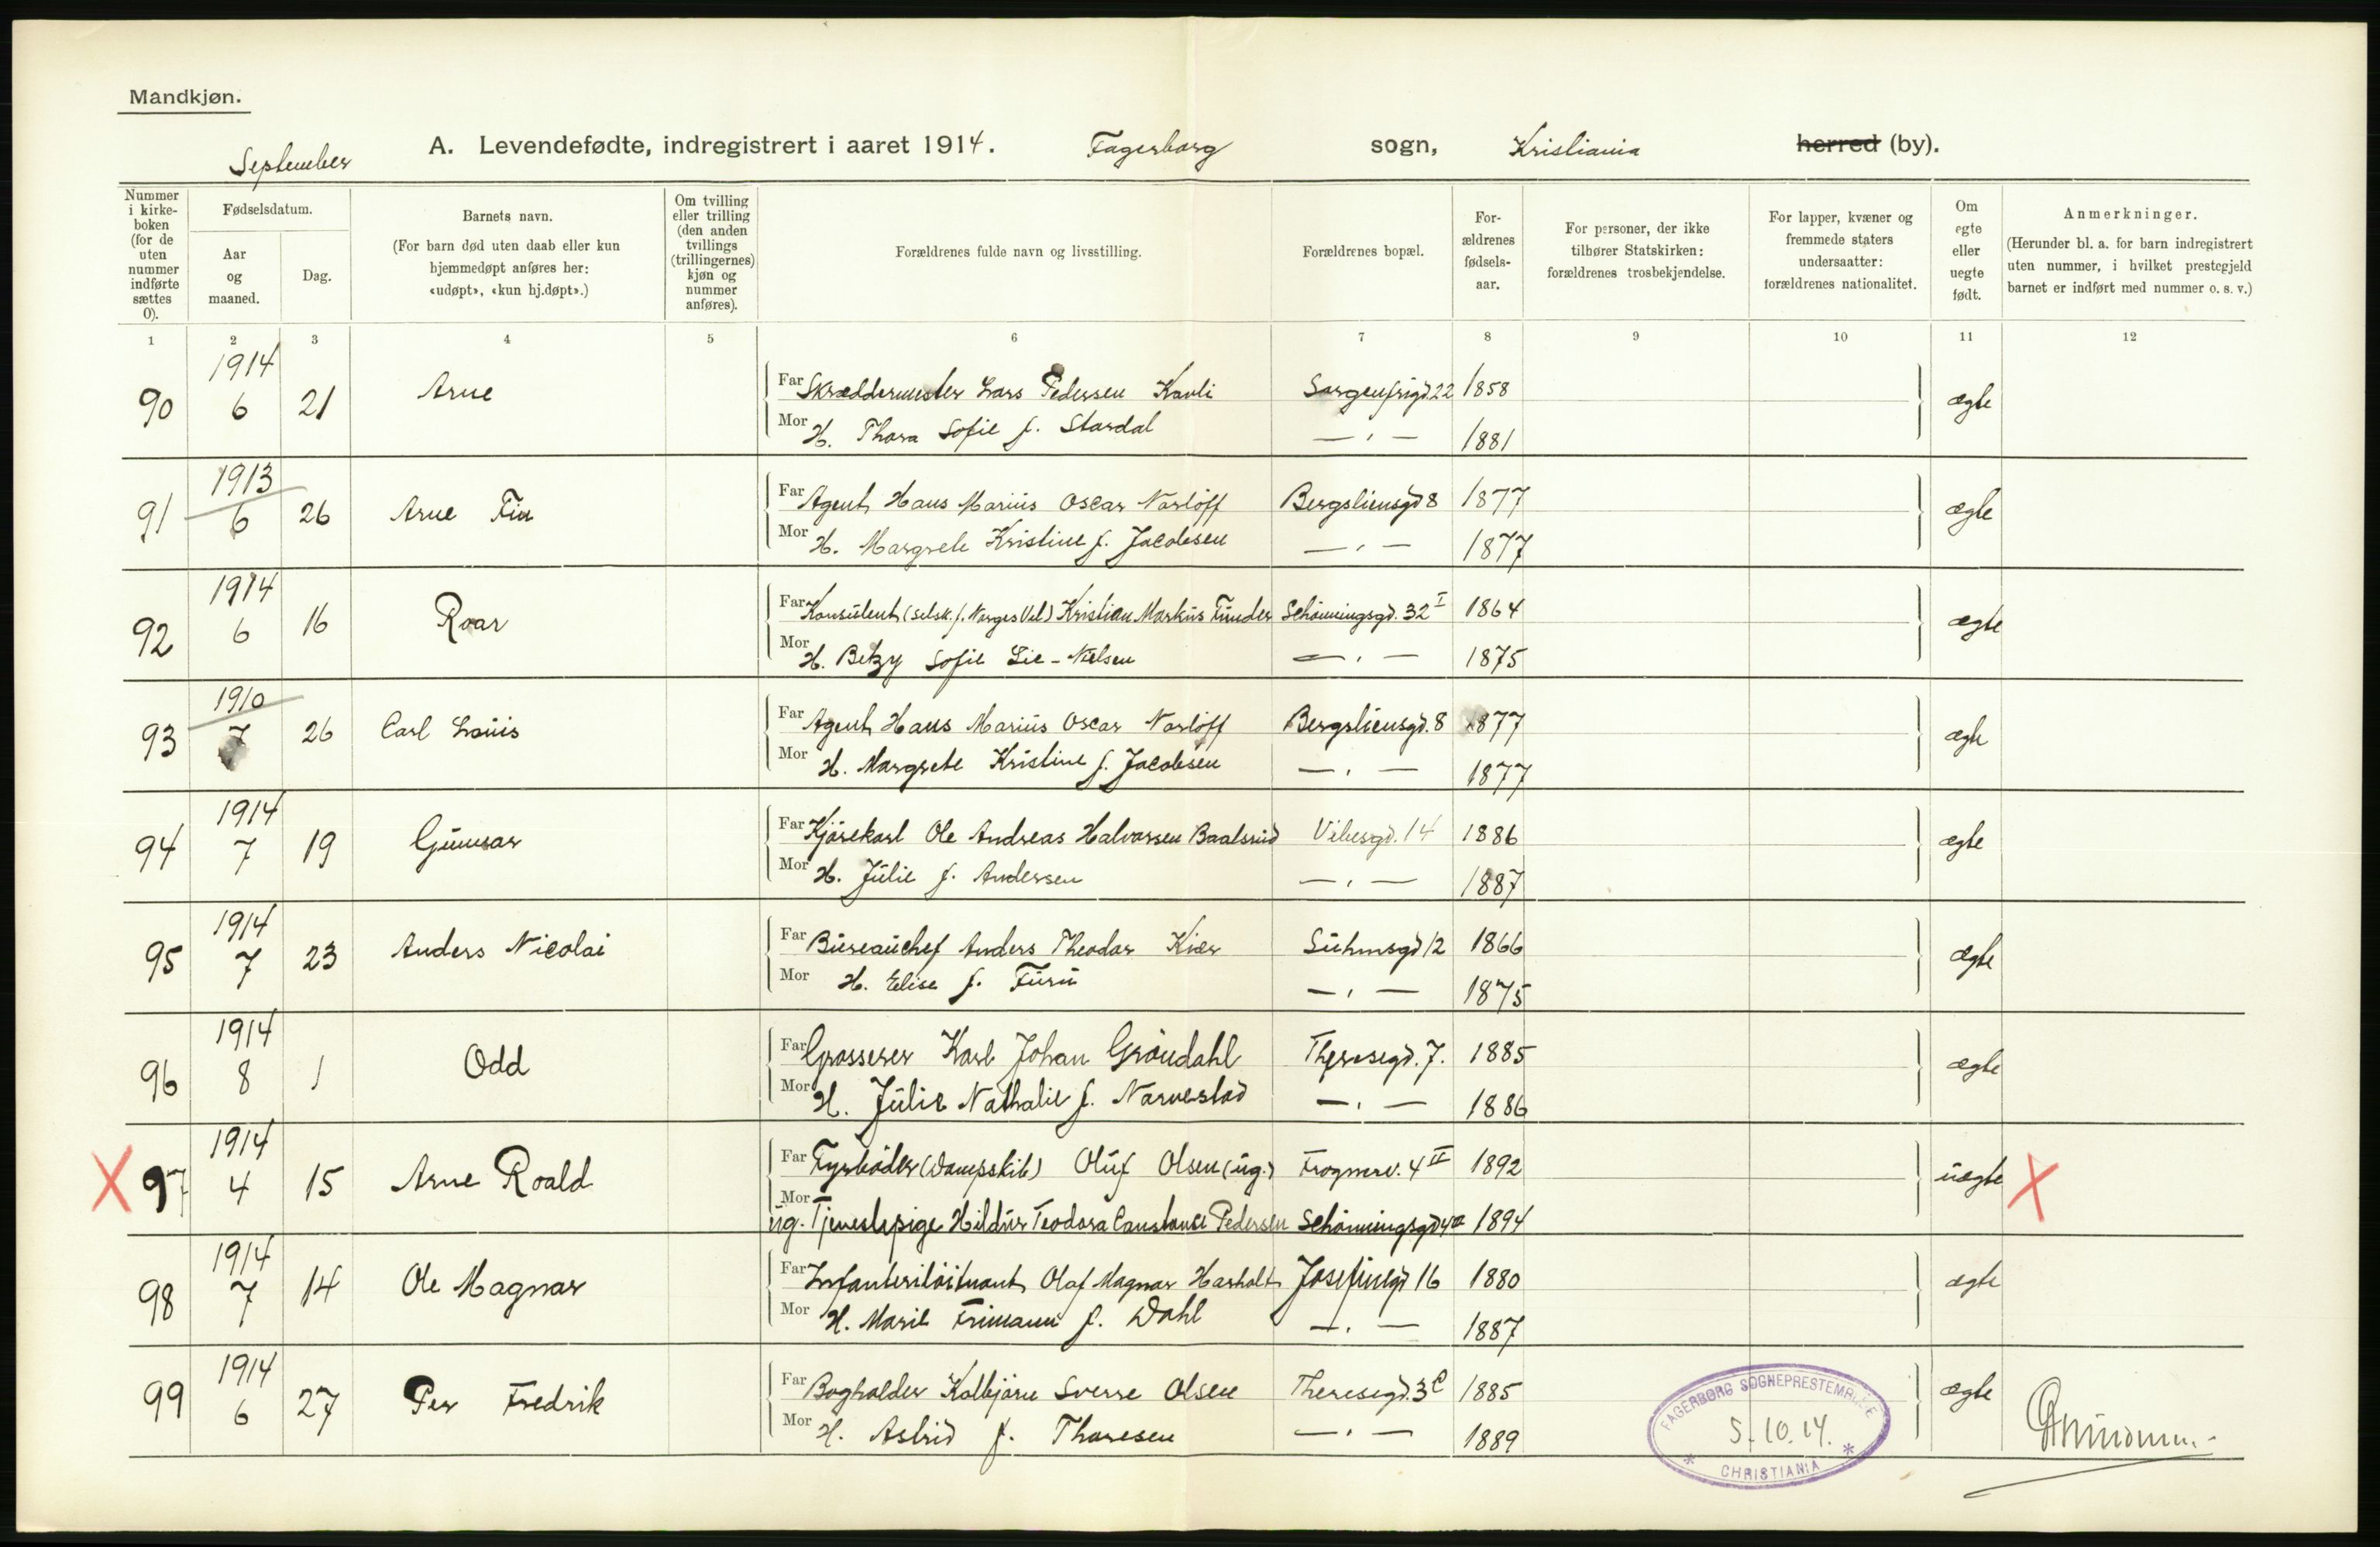 Mandkjøn.
September
A. Levendefødte, indregistrert i aaret 1914. Fagerborg sogn, Kristiania herred (by).
Nummer i kirke-boken (for de uten nummer indførte sættes 0).
Fødselsdatum.
Aar og maaned.
Dag.
Barnets navn.
(For barn død uten daab eller kun hjemmedøpt anføres her: «udøpt», «kun hj.døpt».)
Om tvilling eller trilling (den anden tvillings (trillingernes) kjøn og nummer anføres).
Forældrenes fulde navn og livsstilling.
Forældrenes bopæl.
For-ældrenes fødsels-aar.
For personer, der ikke tilhører Statskirken: forældrenes trosbekjendelse.
For lapper, kvæner og fremmede staters undersaatter: forældrenes nationalitet.
Om egte eller uegte født.
Anmerkninger.
(Herunder bl. a. for barn indregistrert uten nummer, i hvilket prestegjeld barnet er indført med nummer o. s. v.)
1 2 3 4 5 6 7 8 9 10 11 12
90 1914 6 21 Arne Far Skræddermester Lars Pedersen Kavli Sorgenfrigd 22 1858 ægte
Mor H. Thora Sofie f. Stardal — " — 1881
91 1913 6 26 Arne Fin Far Agent Hans Marius Oscar Narloff Bergsliensgd 8 1877 ægte
Mor H. Margrete Kristine f. Jacobsen — " — 1877
92 1914 6 16 Roar Far Konsulent (Selsk. f. Norges Vel) Kristian Markus Funder Schönningsgd. 32 I 1864 ægte
Mor H. Betzy Sofie Lie-Nielsen — " — 1875
93 1910 7 26 Carl Louis Far Agent Hans Marius Oscar Narloff Bergsliensgd. 8 1877 ægte
Mor H. Margrete Kristine f. Jacobsen — " — 1877
94 1914 7 19 Gunnar Far Kjørekarl Ole Andreas Halvorsen Baalsrud Vibesgd. 14 1886 ægte
Mor H. Julie f. Andersen — " — 1887
95 1914 7 23 Anders Nicolai Far Bureauchef Anders Theodor Kiær Suhmsgd 12 1866 ægte
Mor H. Elise f. Furu — " — 1875
96 1914 8 1 Odd Far Grosserer Karl Johan Gröndahl Theresegd. 7. 1885 ægte
Mor H. Julie Nathalie f. Narvestad — " — 1886
X 97 1914 4 15 Arne Roald Far Fyrbøder (Dampskib) Oluf Olsen (ug.) Frognerv. 4 II 1892 uægte X
Mor ug. Tjenestepige Hildur Teodora Constance Pedersen Schönningsgd 4a 1894
98 1914 7 14 Ole Magnar Far Infanteriløitnant Olaf Magnar Harholt Josefinegd 16 1880 ægte
Mor H. Marie Frimann f. Dahl — " — 1887
99 1914 6 27 Per Fredrik Far Bogholder Kolbjörn Sverre Olsen Theresegd. 3 C 1885 ægte
Mor H. Astrid f. Thoresen — " — 1889
FAGERBORG SOGNEPRESTEMBEDE
5.10.14.
* CHRISTIANIA *